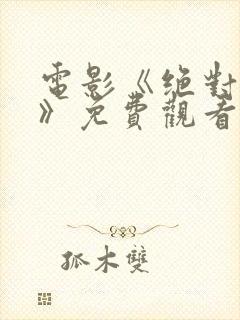 電影《絕對
》免費觀看
孤木雙